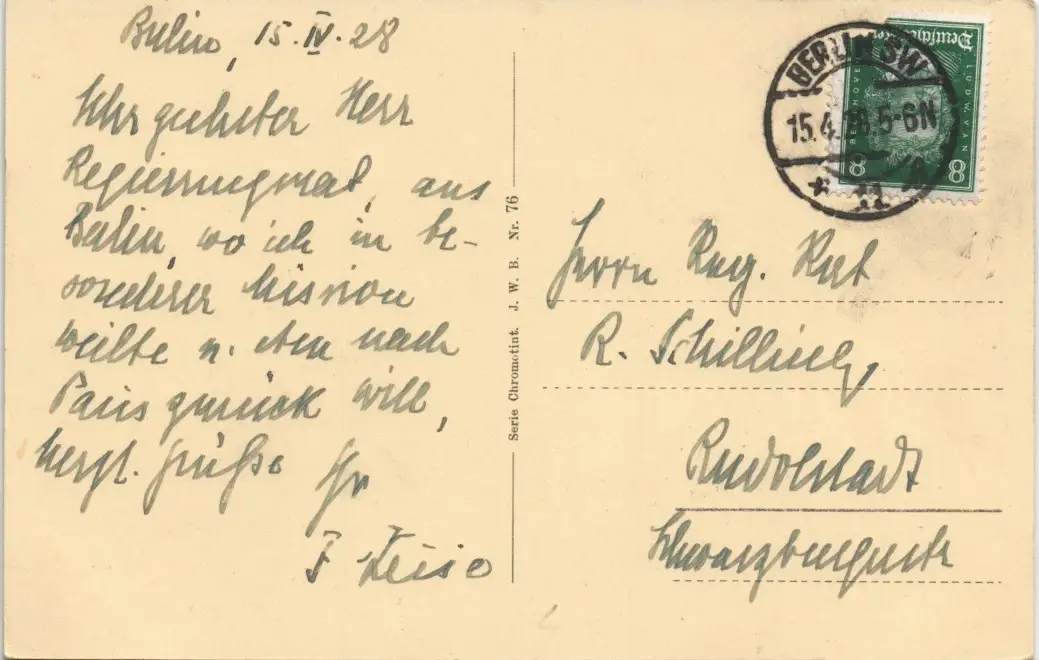 Berlin, 15. IV. 28
Sehr geehrter Herr
Regierungsrat, aus
Berlin, wo ich in be-
sonderer Mission
weilte u. eben nach
Paris zurück will,
herzl. Grüße Ihr
F
Serie Chromotint. J. W. B. Nr. 76
BERLIN SW
15.4.28.5-6N
* 11
Deutsches Reich
LUDW. VAN
BEETHOVEN
8 8
Herrn Reg. Rat
R. Schilling,
Rudolstadt
Schwarzburgerstr